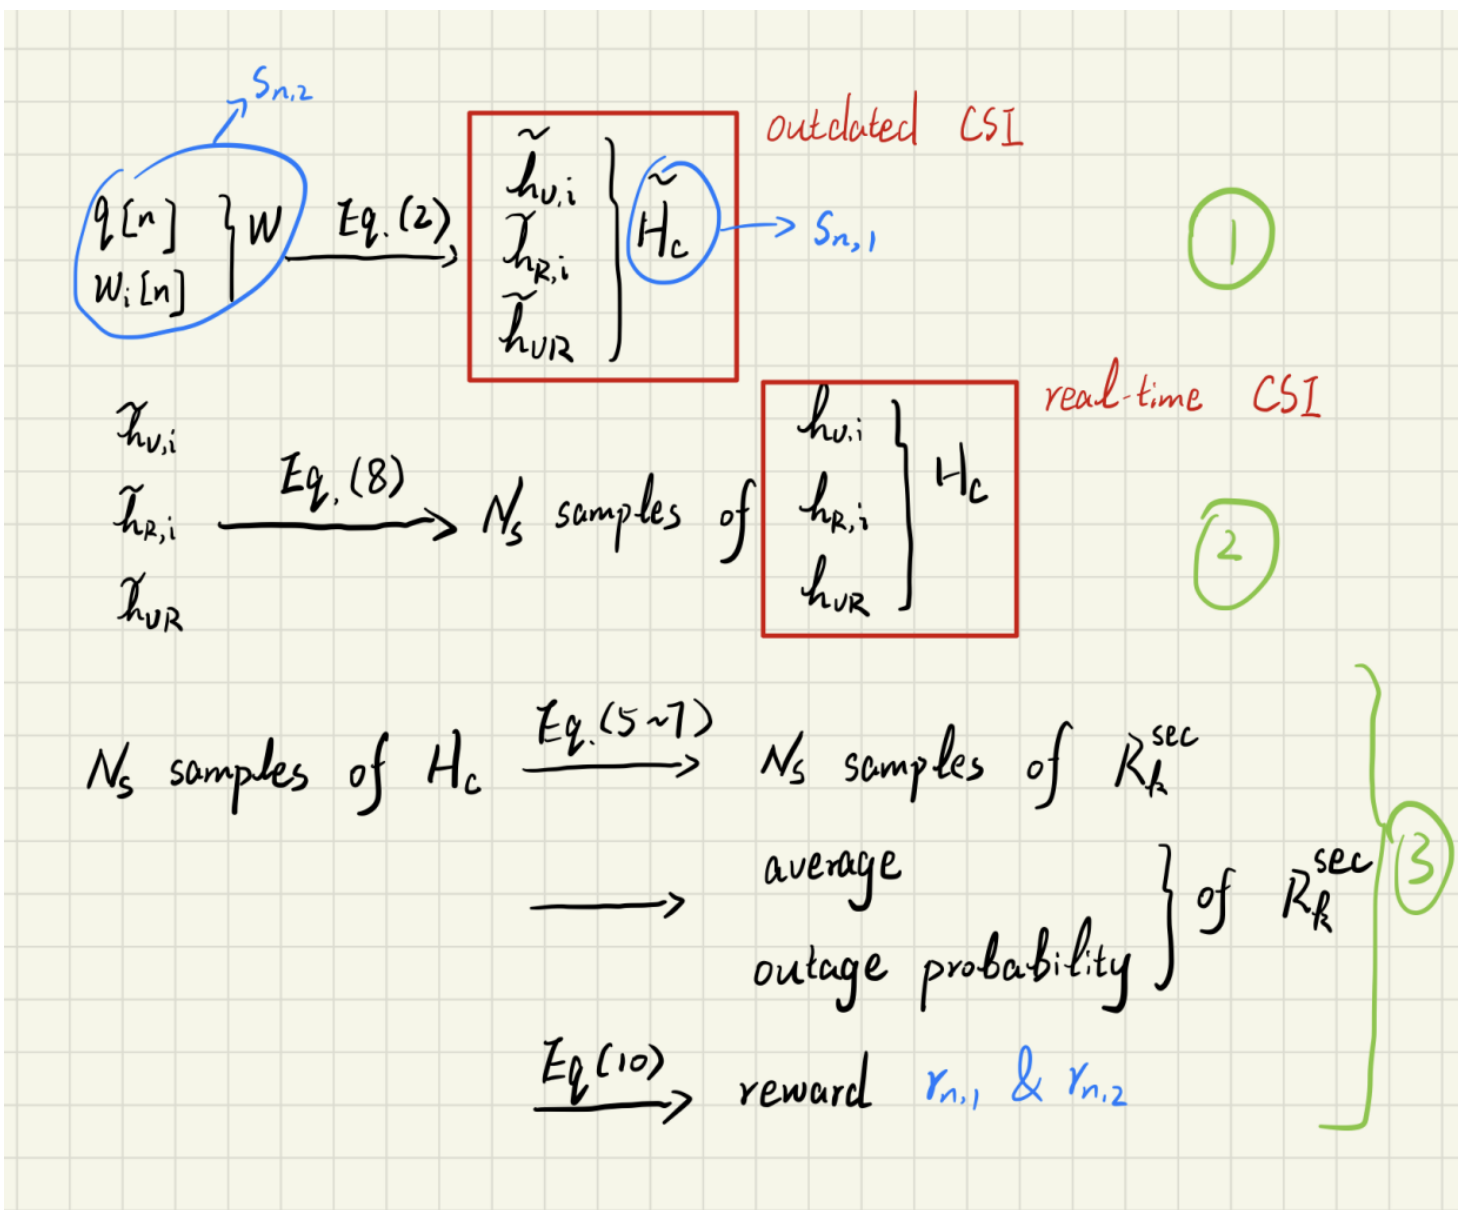 S_{n,2}
outdated CSI
q[n]
w_i[n]
} W
Eq.(2)
\tilde{h}_{U,i}
\tilde{h}_{R,i}
\tilde{h}_{UR}
} \tilde{H}_c
S_{n,1}
①
real-time CSI
\tilde{h}_{U,i}
\tilde{h}_{R,i}
\tilde{h}_{UR}
Eq.(8)
N_s samples of
h_{U,i}
h_{R,i}
h_{UR}
} H_c
②
N_s samples of H_c Eq.(5~7) → N_s samples of R_k^{sec}
→ average
outage probability
} of R_k^{sec}
③
Eq(10) → reward r_{n,1} & r_{n,2}